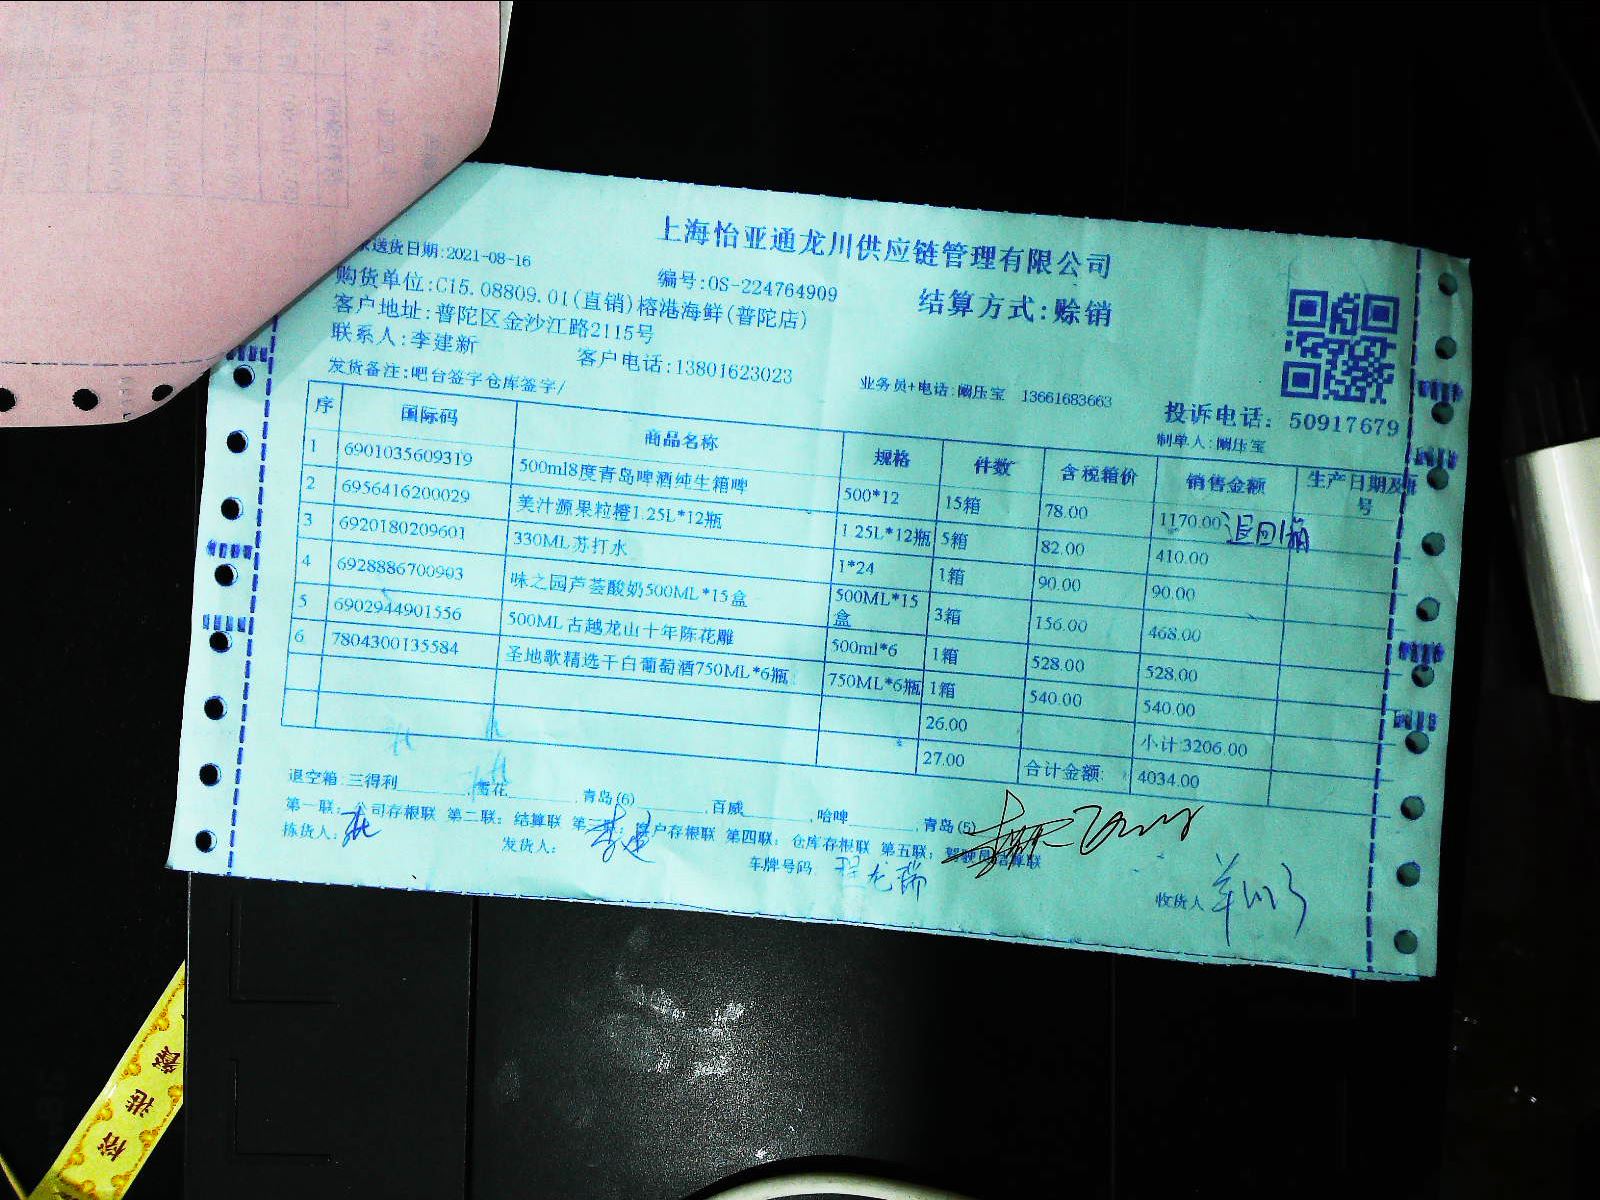 上海怡亚通龙川供应链管理有限公司
送货日期:2021-08-16
编号:OS-224764909
结算方式:赊销
购货单位:C15.08809.01(直销)榕港海鲜(普陀店)
客户地址:普陀区金沙江路2115号
联系人:李建新
客户电话:13801623023
发货备注:吧台签字仓库签字/
业务员+电话: 压宝 13661683663
投诉电话: 50917679
制单人: 压宝
序 国际码 商品名称 规格 件数 含税箱价 销售金额 生产日期及 号
1 6901035609319 500ml8度青岛啤酒纯生箱啤 500*12 15箱 78.00 1170.00 退回1箱
2 6956416200029 美汁源果粒橙1.25L*12瓶 1 25L*12瓶 5箱 82.00 410.00
3 6920180209601 330ML苏打水 1*24 1箱 90.00 90.00
4 6928886700903 味之园芦荟酸奶500ML*15盒 500ML*15盒 3箱 156.00 468.00
5 6902944901556 500ML古越龙山十年陈花雕 500ml*6 1箱 528.00 528.00
6 7804300135584 圣地歌精选干白葡萄酒750ML*6瓶 750ML*6瓶 1箱 540.00 540.00
26.00 小计:3206.00
27.00 合计金额: 4034.00
退空箱:三得利 雪花 青岛(6) 百威 哈啤 青岛(5)
第一联: 公司存根联 第二联: 结算联 第三联: 客户存根联 第四联: 仓库存根联 第五联: 驾驶员结算联
拣货人:
发货人:
车牌号码 程龙瑞
收货人
榕港餐